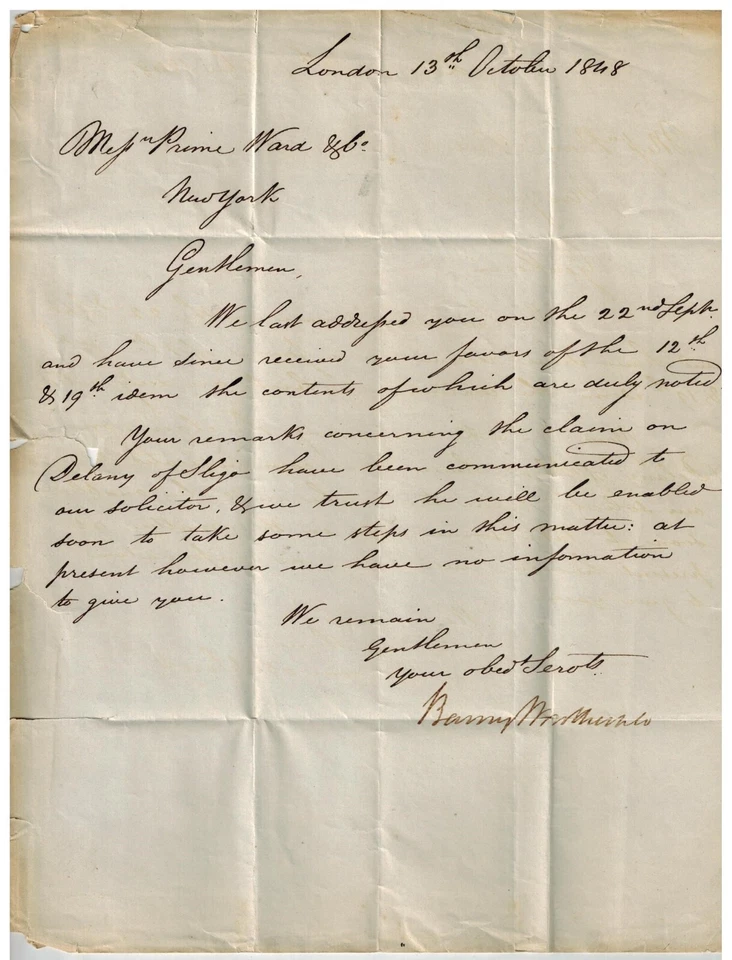 London 13th October 1848
Messrs Prime Ward & Co.
New York
Gentlemen,
We last addressed you on the 22nd Septr.
and have since received your favors of the 12th
& 19th idem the contents of which are duly noted.
Your remarks concerning the claim on
Delany of Sligo have been communicated to
our solicitor, & we trust he will be enabled
soon to take some steps in this matter: at
present however we have no information
to give you.
We remain
Gentlemen
Your obedt. Servts.